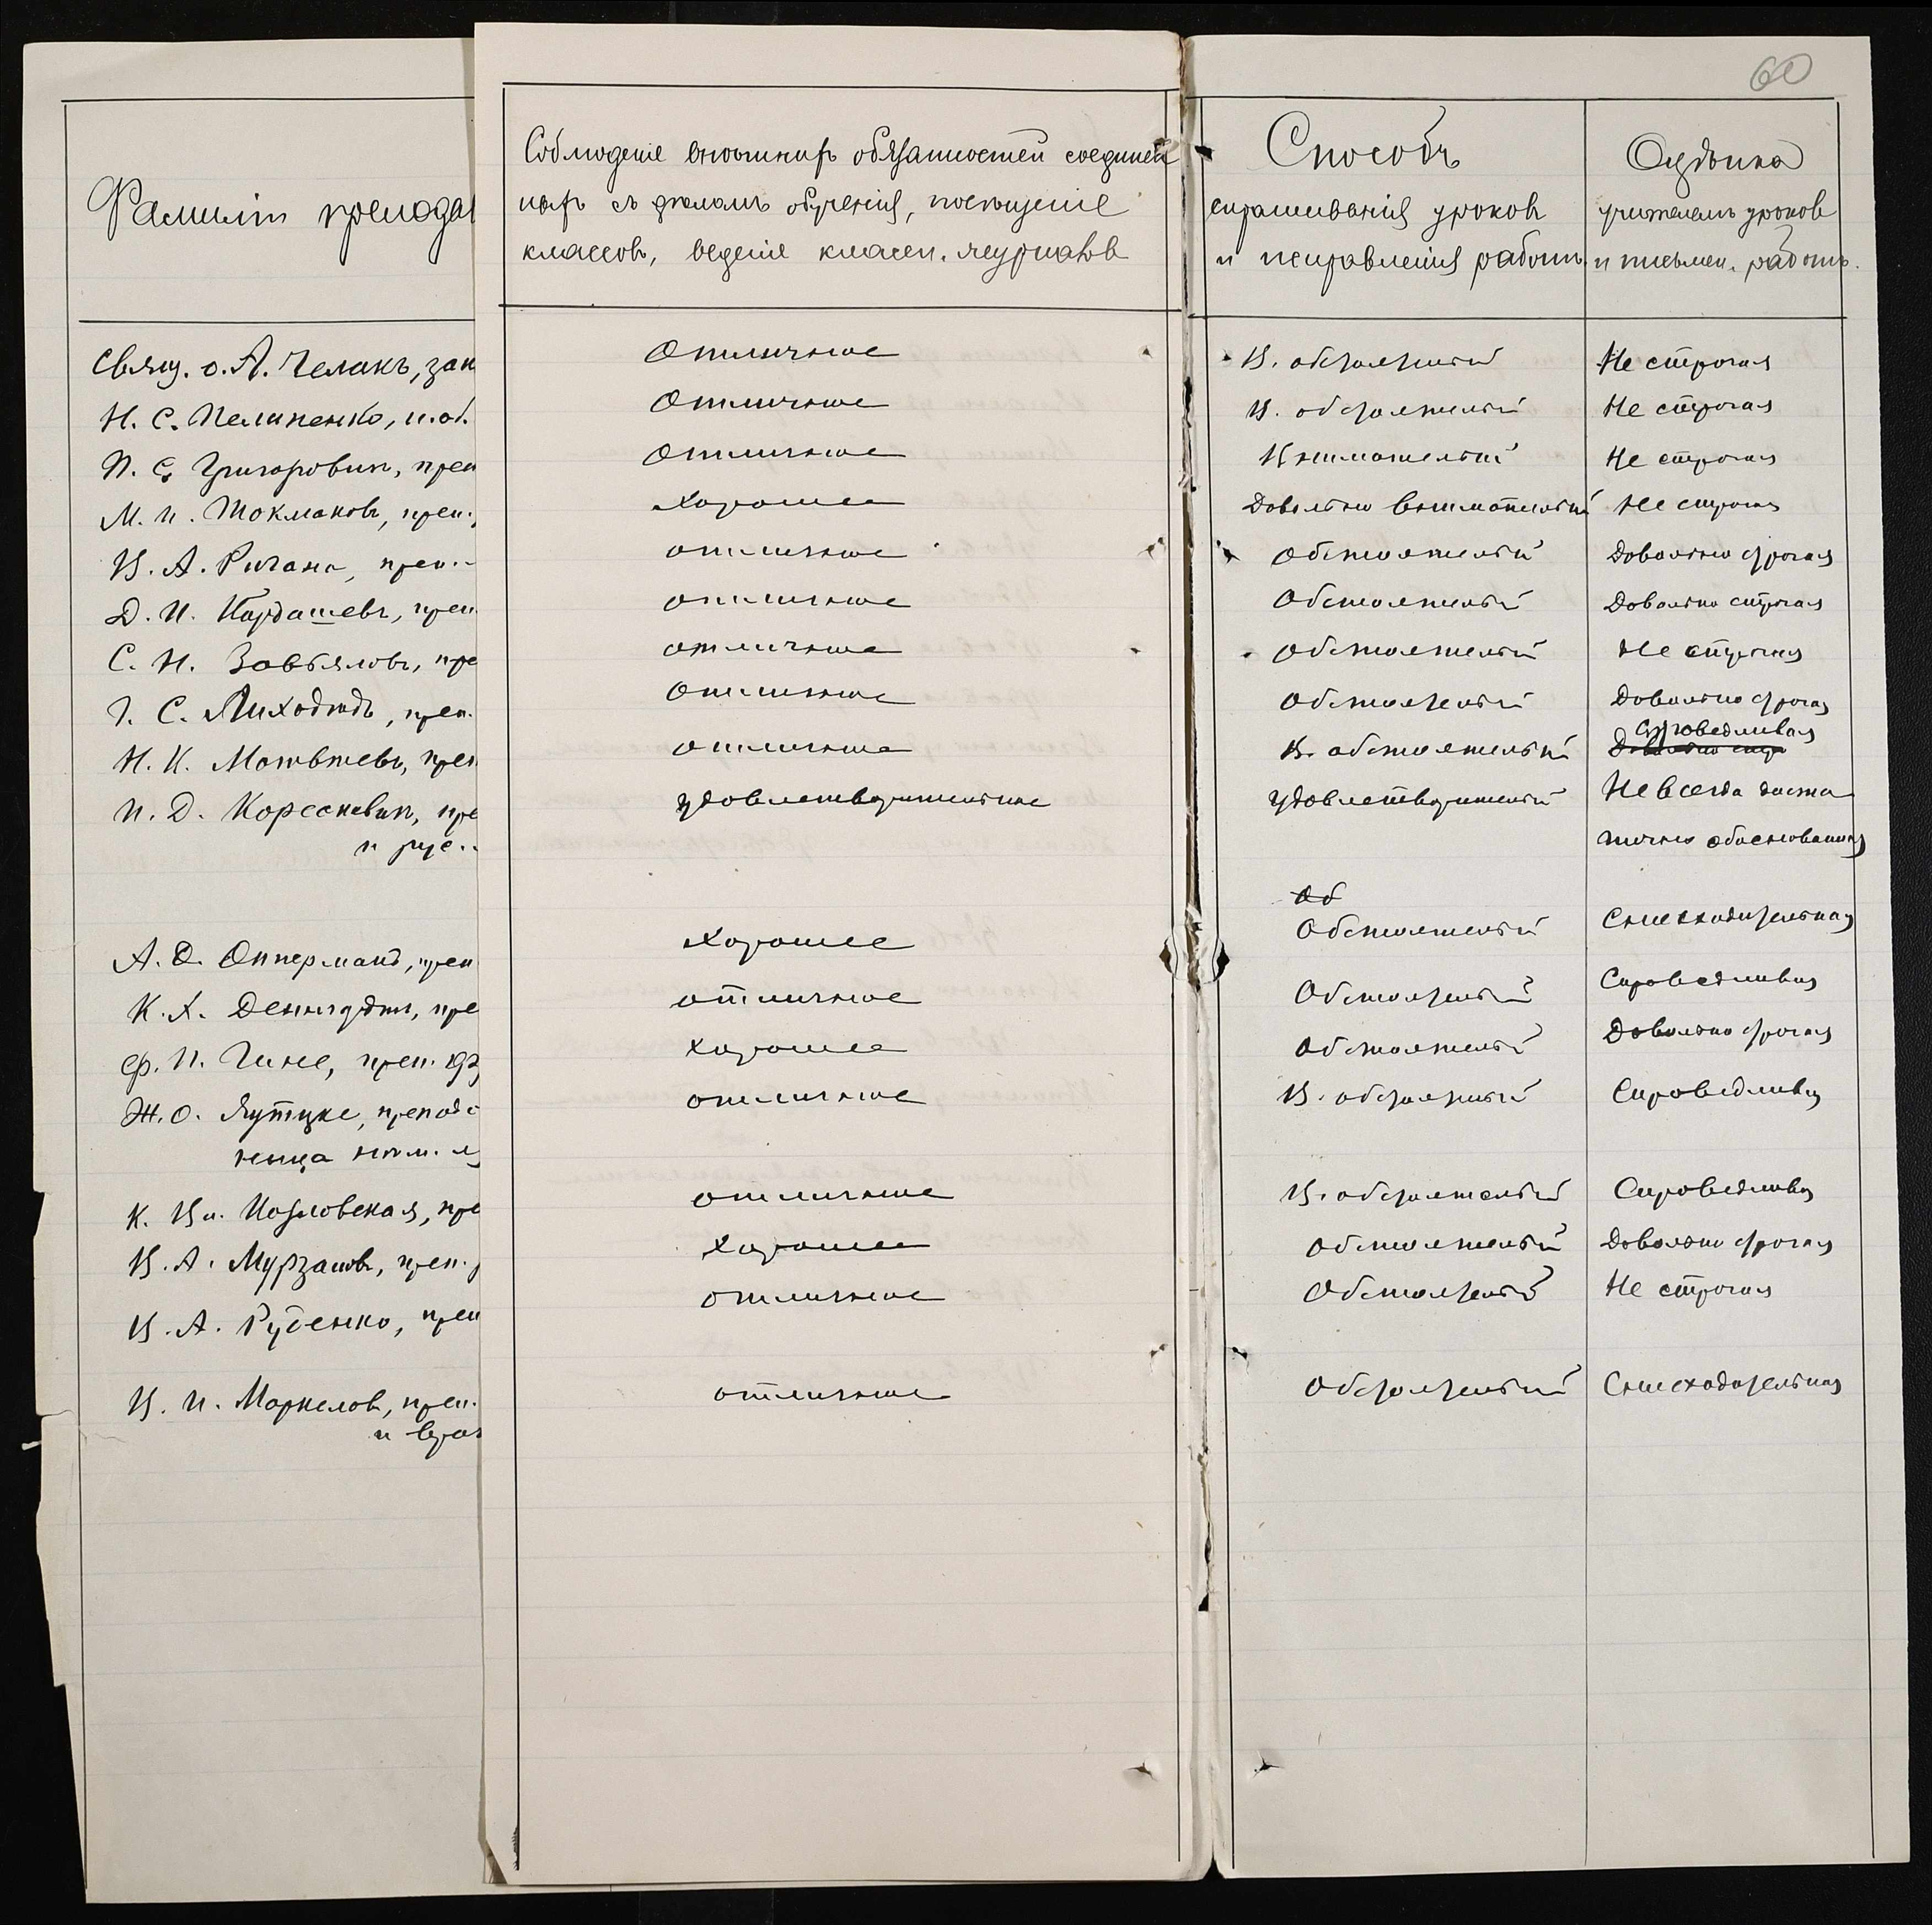 60
Фамилiи препода
Соблюденiе внѣшнихъ обязанностей соединен
ныхъ съ дѣломъ обученiя, посѣщенiе
классовъ, веденiе классн. журналовъ
Способъ
спрашиванiя уроковъ
и исправленiя работъ
Оцѣнка
учителемъ уроковъ
и письмен. работъ.
Свящ. о. А. Челакъ, зак Отличное В. обстоятельный Не строгая
Н. С. Пелипенко, и. об. Отличное В. обстоятельный Не строгая
П. С. Григоровичъ, преп Отличное Внимательный Не строгая
М. И. Токмаковъ, преп. Хорошее Довольно внимательный Не строгая
В. А. преп. отличное Обстоятельный Довольно строгая
Д. И. Кардашевъ, преп. отличное Обстоятельный Довольно строгая
С. Н. Завьяловъ, пре отличное Обстоятельный Не строгая
С. Лиходѣдъ, преп. Отличное Обстоятельный Довольно строгая
Справедливая
Н. К. Матвѣевъ, преп отличное В. обстоятельный Довольно стро
П. Д. Корсакевичъ, пре удовлетворительное Удовлетворительный Не всегда доста
и рус. точно обоснованная
Об
А. Оппермапъ, преп Хорошее Обстоятельный Снисходительная
К. Х. пре отличное Обстоятельный Справедливая
Ф. П. Гине, преп. Хорошее Обстоятельный Довольно строгая
Ж. О. Яутцке, препода отличное В. обстоятельный Справедлива
ница нѣм. я
К. Вл. Козловская, пре отличное В. обстоятельный Справедлива
В. А. Мурзановъ, преп. Хорошее Обстоятельный Довольно строгая
В. А. Руденко, преп отличное Обстоятельный Не строгая
В. И. Маркеловъ, преп. отличное Обстоятельный Снисходительная
и врач